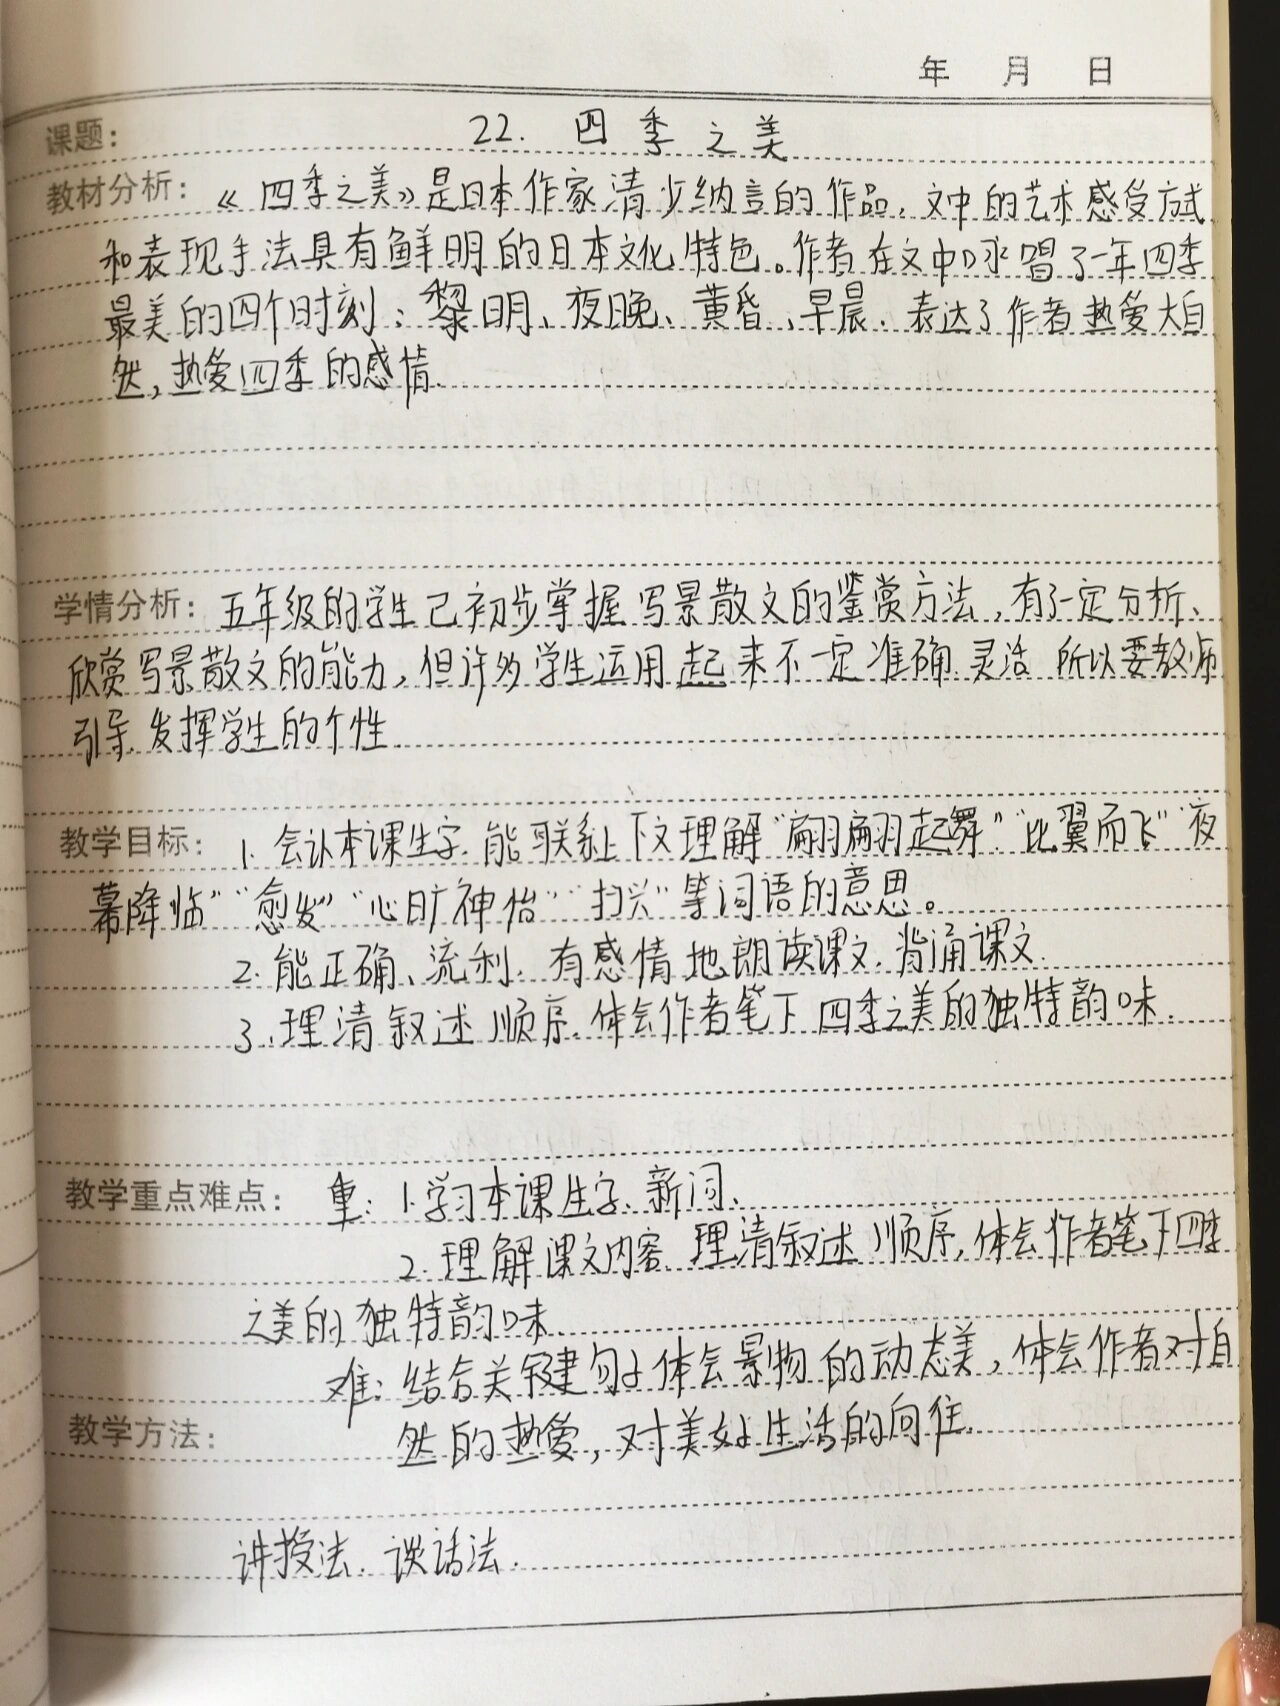 年 月 日
课题： 22. 四季之美
教材分析：《四季之美》是日本作家清少纳言的作品，文中的艺术感受方式
和表现手法具有鲜明的日本文化特色。作者在文中咏唱了一年四季
最美的四个时刻：黎明、夜晚、黄昏、早晨，表达了作者热爱大自
然，热爱四季的感情.
学情分析：五年级的学生已初步掌握写景散文的鉴赏方法，有了一定分析、
欣赏写景散文的能力，但许多学生运用起来不一定准确、灵活 所以要教师
引导、发挥学生的个性.
教学目标：1. 会认本课生字.能联系上下文理解“翩翩起舞”“比翼而飞”“夜
幕降临”“愈发”“心旷神怡”“扫兴”等词语的意思。
2. 能正确、流利、有感情地朗读课文.背诵课文.
3. 理清叙述顺序.体会作者笔下四季之美的独特韵味.
教学重点难点：重：1.学习本课生字、新词、
2. 理解课文内容 理清叙述顺序，体会作者笔下四季
之美的独特韵味.
难：结合关键句子体会景物的动态美，体会作者对自
教学方法： 然的热爱，对美好生活的向往.
讲授法、谈话法.